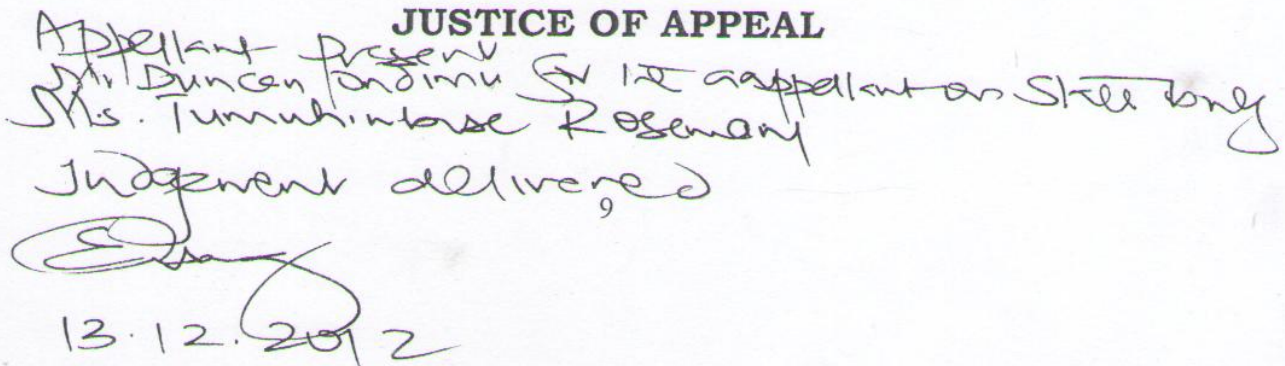 JUSTICE OF APPEAL
Appellant present
Mr Duncan Ondimu for the appellant on State
Ms. Tumuhimbise Rosemary
Judgement delivered
9
13.12.2012